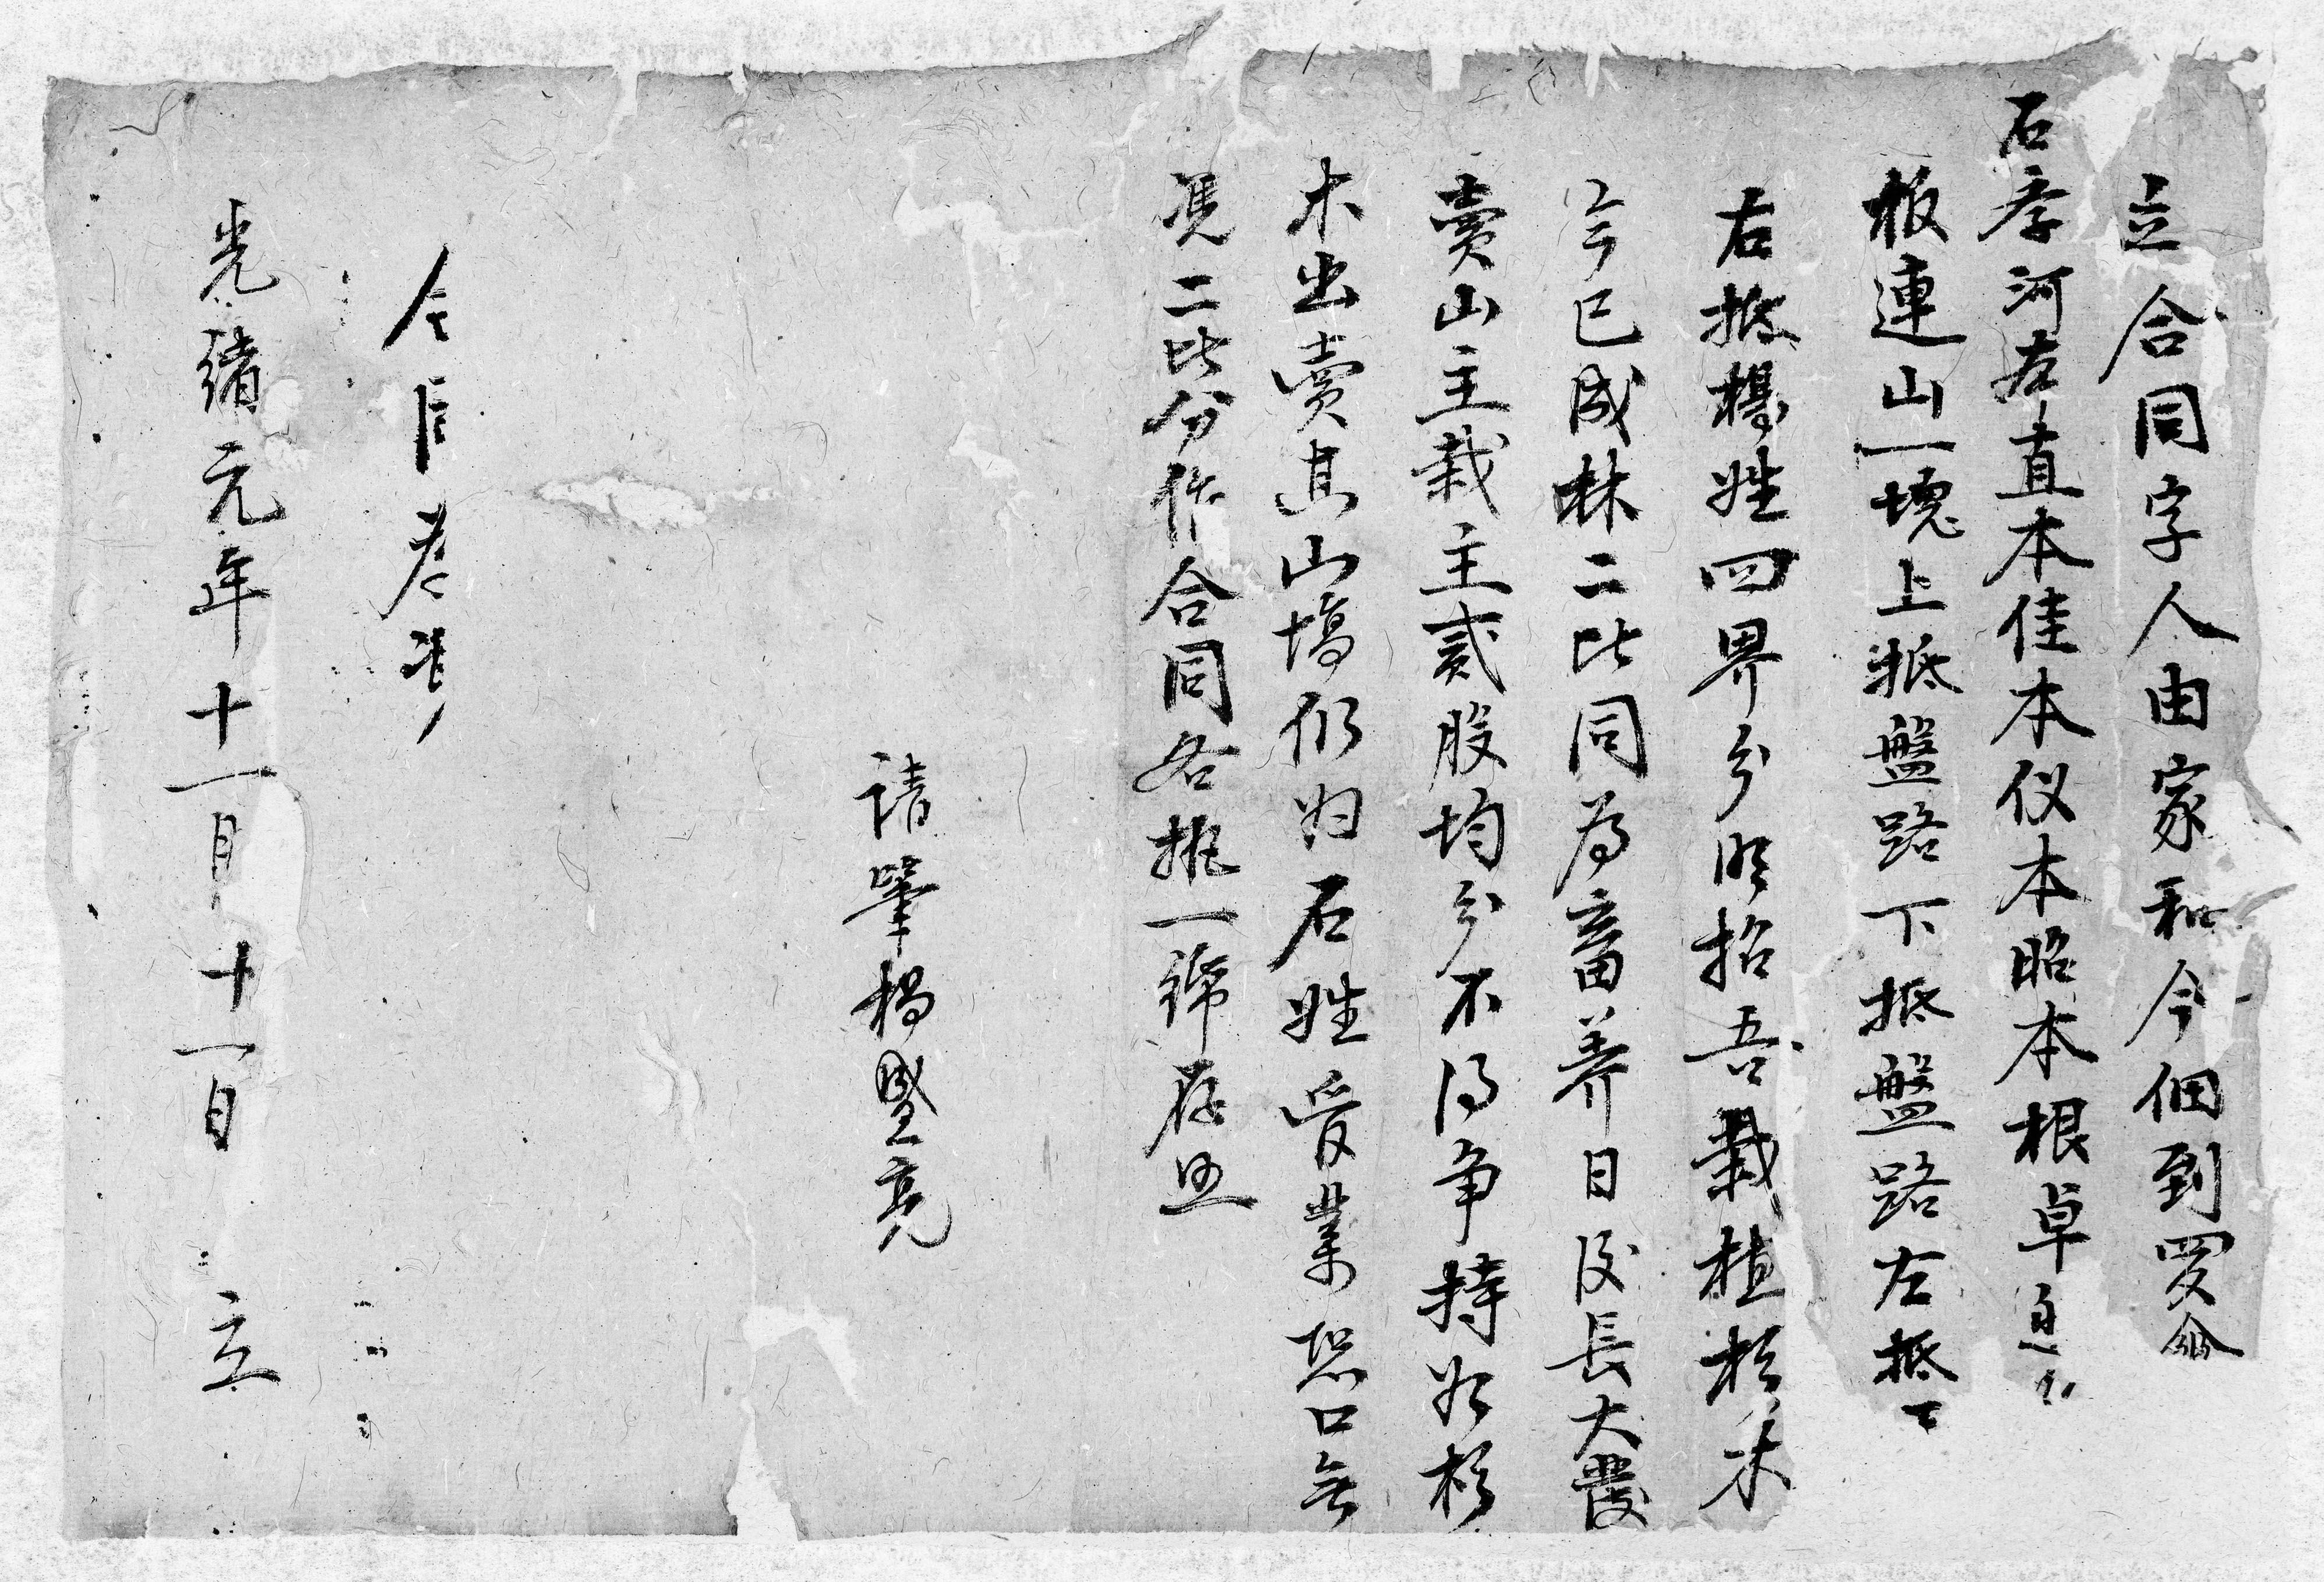 立合同字人由家和今佃到受
石孝河右直本佳本仪本昭本根卓
板連山一塊上抵盤路下抵盤路左抵
右抵楊姓四界分明招吾栽植杉木
今已成林二比同為畜养日後長大發
賣山主栽主贰股均分不得争持如杉
木出賣其山塲仍为石姓受業恐口無
凭二比分作合同各执一𧇊存照
請筆楊盛亮
光緒元年十一月十一日 立